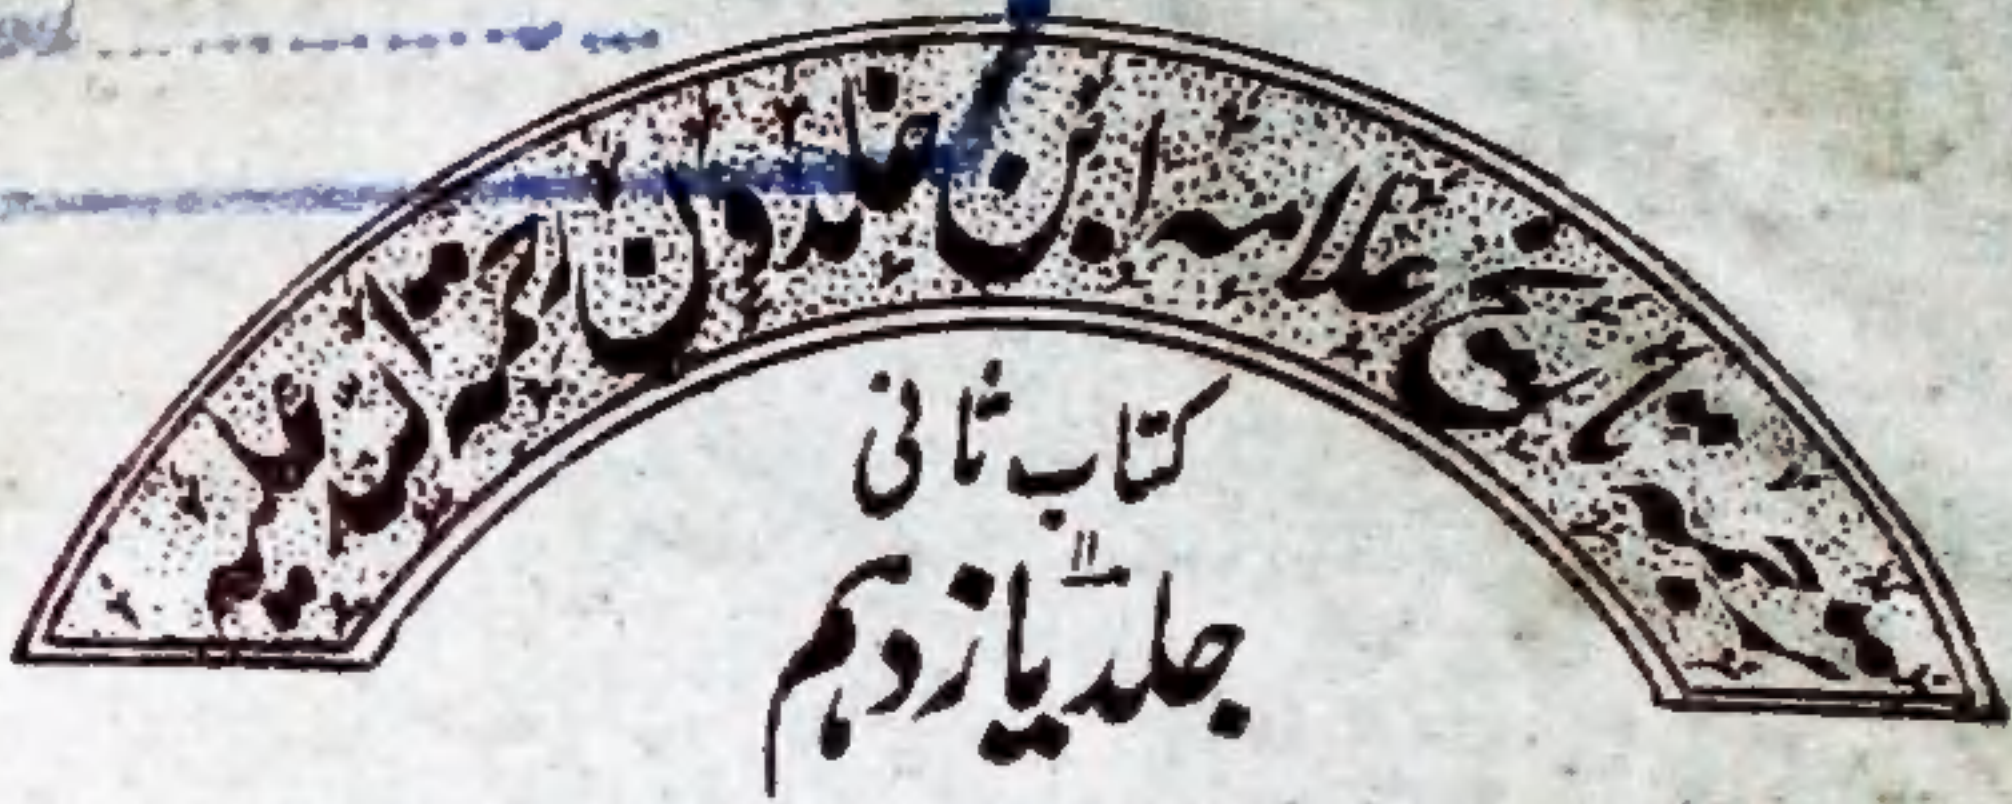 ترجمہ تاریخ علامہ ابن خلدون رحمۃ اللہ علیہ
کتاب ثانی
۱۱
جلد یازدہم